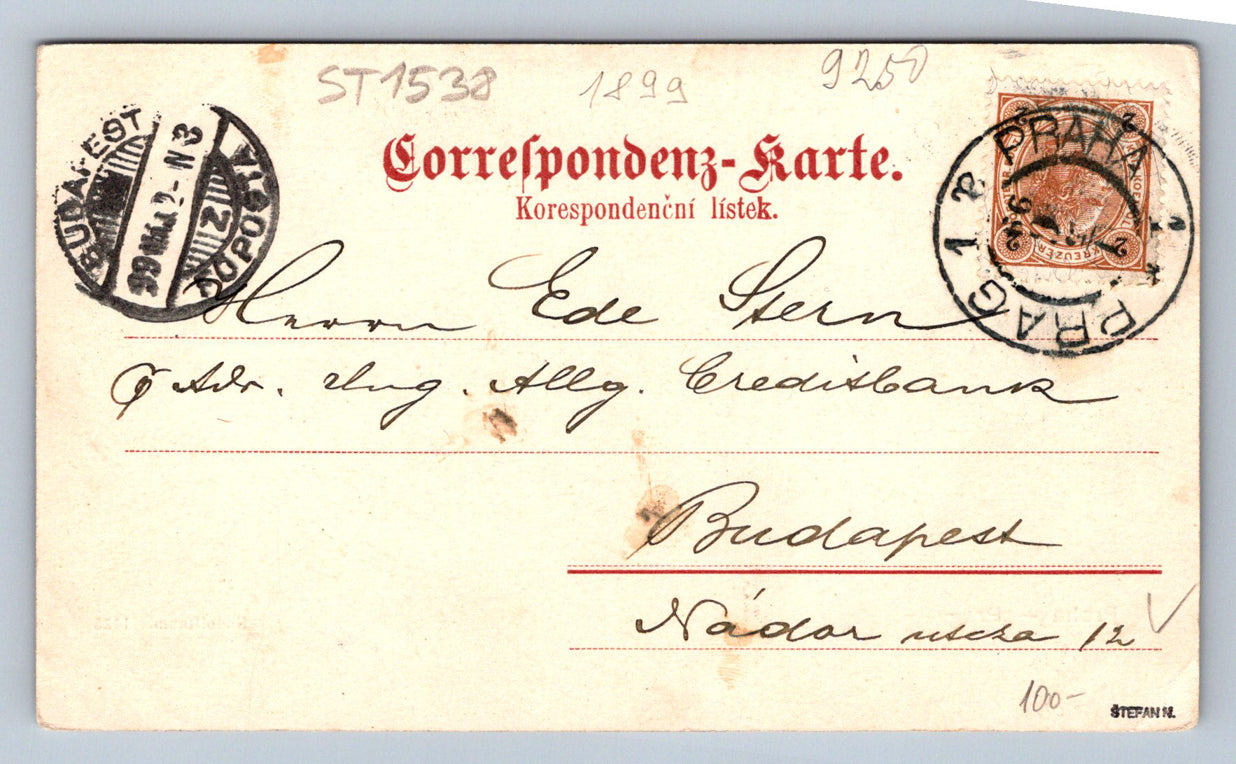 ST1538 1899 9250
Correſpondenz-Karte.
Korespondenční lístek.
BUDAPEST 99 2-N3
PRAHA 1 * PRAG 1
2 KREUZER 2
Herrn Ede Stern
Adr. Ung. Allg. Creditbank
Budapest
Nádor utcza 12
100-
ŠTEFAN N.